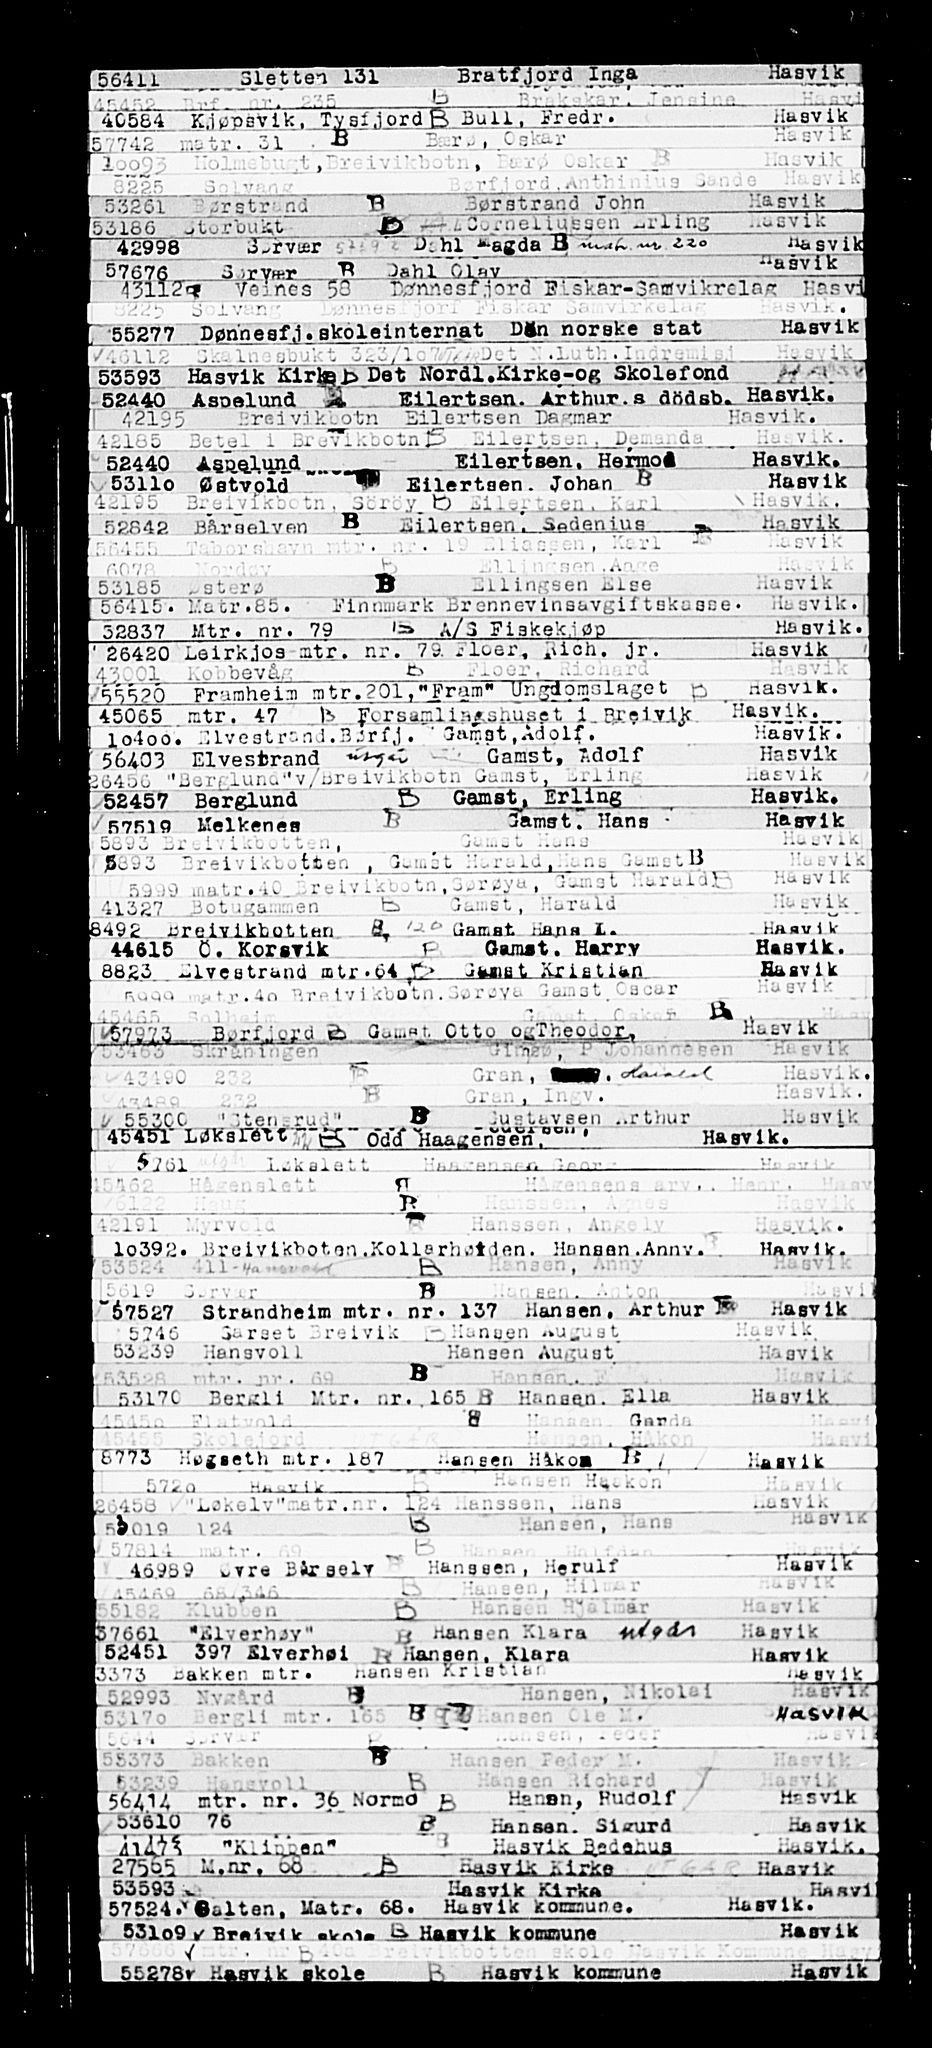 56411 Sletten 131 Bratfjord Inga Hasvik
45452 Brf. nr. 235 B Brakskar, Jensine Hasvi
40584 Kjøpsvik, Tysfjord B Bull, Fredr. Hasvik
57742 matr. 31 . B Bærø, Oskar Hasvik
10093 Holmebugt,Breivikbotn, Bærø Oskar B Hasvik
8225 Solvang Børfjord.Anthinius Sande Hasvik
53261 Børstrand B Børstrand John Hasvik
53186 Storbukt B Corneliussen Erling Hasvik
42998 Sørvær Dahl Magda B matr. nr. 220 Hasvik
57676 Sørvær B Dahl Olav Hasvik
43112 Veines 58 Dønnesfjord Fiskar-Samvikrelag Hasvi
8225 Solvang Dønnesfjorf Fiskar Samvirkelag Hasvik.
55277 Dønnesfj.skoleinternat Den norske stat Hasvik
46112 Skalnesbukt 323/10 Det N.Luth.Indremisj Hasvik
53593 Hasvik Kirke B Det Nordl.Kirke-og Skolefond
52440 Aspelund Eilertsen. Arthur.s dödsb. Hasvik.
42195 Breivikbotn Eilertsen Dagmar Hasvik.
42185 Betel i Brevikbotn B Eilertsen, Demanda Hasvik.
52440 Aspelund Eilertsen, Hermod Hasvik.
53110 Østvold Eilertsen. Johan B Hasvik
42195 Breivikbotn, Söröy B Eilertsen, Karl Hasvik.
52842 Bårselven B Eilertsen. Sedenius Hasvik
56455 Taborshavn mtr. nr. 19 Eliassen, Karl B Hasvik
6078 Nordøy B Ellingsen.Aage Hasvik
53185 Østerø B Ellingsen Else Hasvik
56415. Matr.85. Finnmark Brennevinsavgiftskasse. Hasvik.
52837 Mtr. nr. 79 B A/S Fiskekjøp Hasvik.
26420 Leirkjos mtr. nr. 79 Floer, Rich. jr. Hasvik
43001 Kobbevåg B Floer, Richard Hasvik
55520 Framheim mtr.201,"Fram" Ungdomslaget B Hasvik.
45065 mtr. 47 B Forsamlingshuset i Breivik Hasvik.
10400. Elvestrand.Børfj. Gamst,Adolf. Hasvik.
56403 Elvestrand utgår Gamst, Adolf Hasvik
26456 "Berglund"v/Breivikbotn Gamst, Erling Hasvik
52457 Berglund B Gamst, Erling Hasvik.
57519 Melkenes B Gamst. Hans Hasvik
5893 Breivikbotten, Gamst Hans Hasvik
5893 Breivikbotten , Gamst Harald,Hans Gamst B Hasvik
5999 matr.40 Breivikbotn,Sørøya, Gamst Harald B Hasvik
41327 Botugammen B Gamst, Harald Hasvik
8492 Breivikbotten B, 120 Gamst Hans L. Hasvik
44615 Ö. Korsvik B Gamst. Harry Hasvik.
8823 Elvestrand mtr.64 B Gamst Kristian Hasvik
5999 matr.40 Breivikbotn.Sørøya Gamst Oscar Hasvik
45465 Solheim Gamst, Oskar B
57973 Børfjord B Gamst Otto ogTheodor, Hasvik
53463 Skråningen Gimsø, P Johannesen Hasvik
43490 232 B Gran, . Harald Hasvik.
43489 232 B Gran, Ingv. Hasvik.
55300 "Stensrud" B Gustavsen Arthur Hasvik
45451 Løkslett B Odd Haagensen, Hasvik.
5761 utgår Løkslett Haagensen Georg Hasvik
45462 Hågenslett B Hågensens arv.. Henr. Hasv
6122 Haug B Hanssen, Agnes Hasvik
42191 Myrvold B Hanssen, Angely Hasvik.
10392. Breivikboten.Kollarhøiden. Hansen.Anny. Hasvik.
53524 411- Hansvold B Hansen, Anny Hasvik
5619 Sørvær B Hansen. Anton Hasvi
57527 Strandheim mtr. nr. 137 Hansen, Arthur B Hasvik
5746 Sarset Breivik B Hansen August Hasvik
53239 Hansvoll Hansen August Hasvik
53528 mtr. nr. 69 B Hansen. E Hasvik
53170 Bergli Mtr. nr. 165 B Hansen. Ella Hasvik
45450 Flatvold B Hansen. Garda Hasvi
45455 Skolejord Hansen, Håkon Hasvi
8773 Høgseth mtr. 187 Hansen Håkon B Hasvik
5720 Hasvik B Hansen Haakon Hasvik
26458 "Løkelv"matr.nr. 124 Hanssen, Hans Hasvik
53019 124 B Hansen, Hans Hasvik
57814 matr. 69 B Hansen Halfdan Hasvik
46989 Øvre Bårselv B Hanssen, Herulf Hasvik
45469 68/346 B Hansen, Hilmar Hasvik
55182 Klubben B Hansen Hjalmar Hasvik
57661 "Elverhøy" B Hansen Klara utgår Hasvik
52451 397 Elverhøi B Hansen, Klara Hasvik
3373 Bakken mtr. Hansen Kristian Hasvik
52993 Nygård B Hansen, Nikolai Hasvik
53170 Bergli mtr. 165 B Hansen Ole M. Hasvik
5644 Sørvær B Hansen, Peder Hasvi
53373 Bakken B Hansen Peder M. Hasvik
53239 Hansvoll B Hansen Richard Hasvik
56414 mtr. nr. 36 Normo B Hansn, Rudolf Hasvik
53610 76 B Hansen. Sigurd Hasvik
41473 "Klippen" B Hasvik Bedehus Hasvik.
27565 M.nr. 68 B Hasvik Kirke UTGÅR Hasvik
53593 Hasvik Kirke Hasvi
57524. Galten, Matr. 68. Hasvik kommune. Hasvik.
53109 Breivik skole B Hasvik kommune Hasvik
57666 mtr. nr B 40a Breivikbotten skole Hasvik Kommune Hasv
55278 Hasvik skole B Hasvik kommune Hasvik